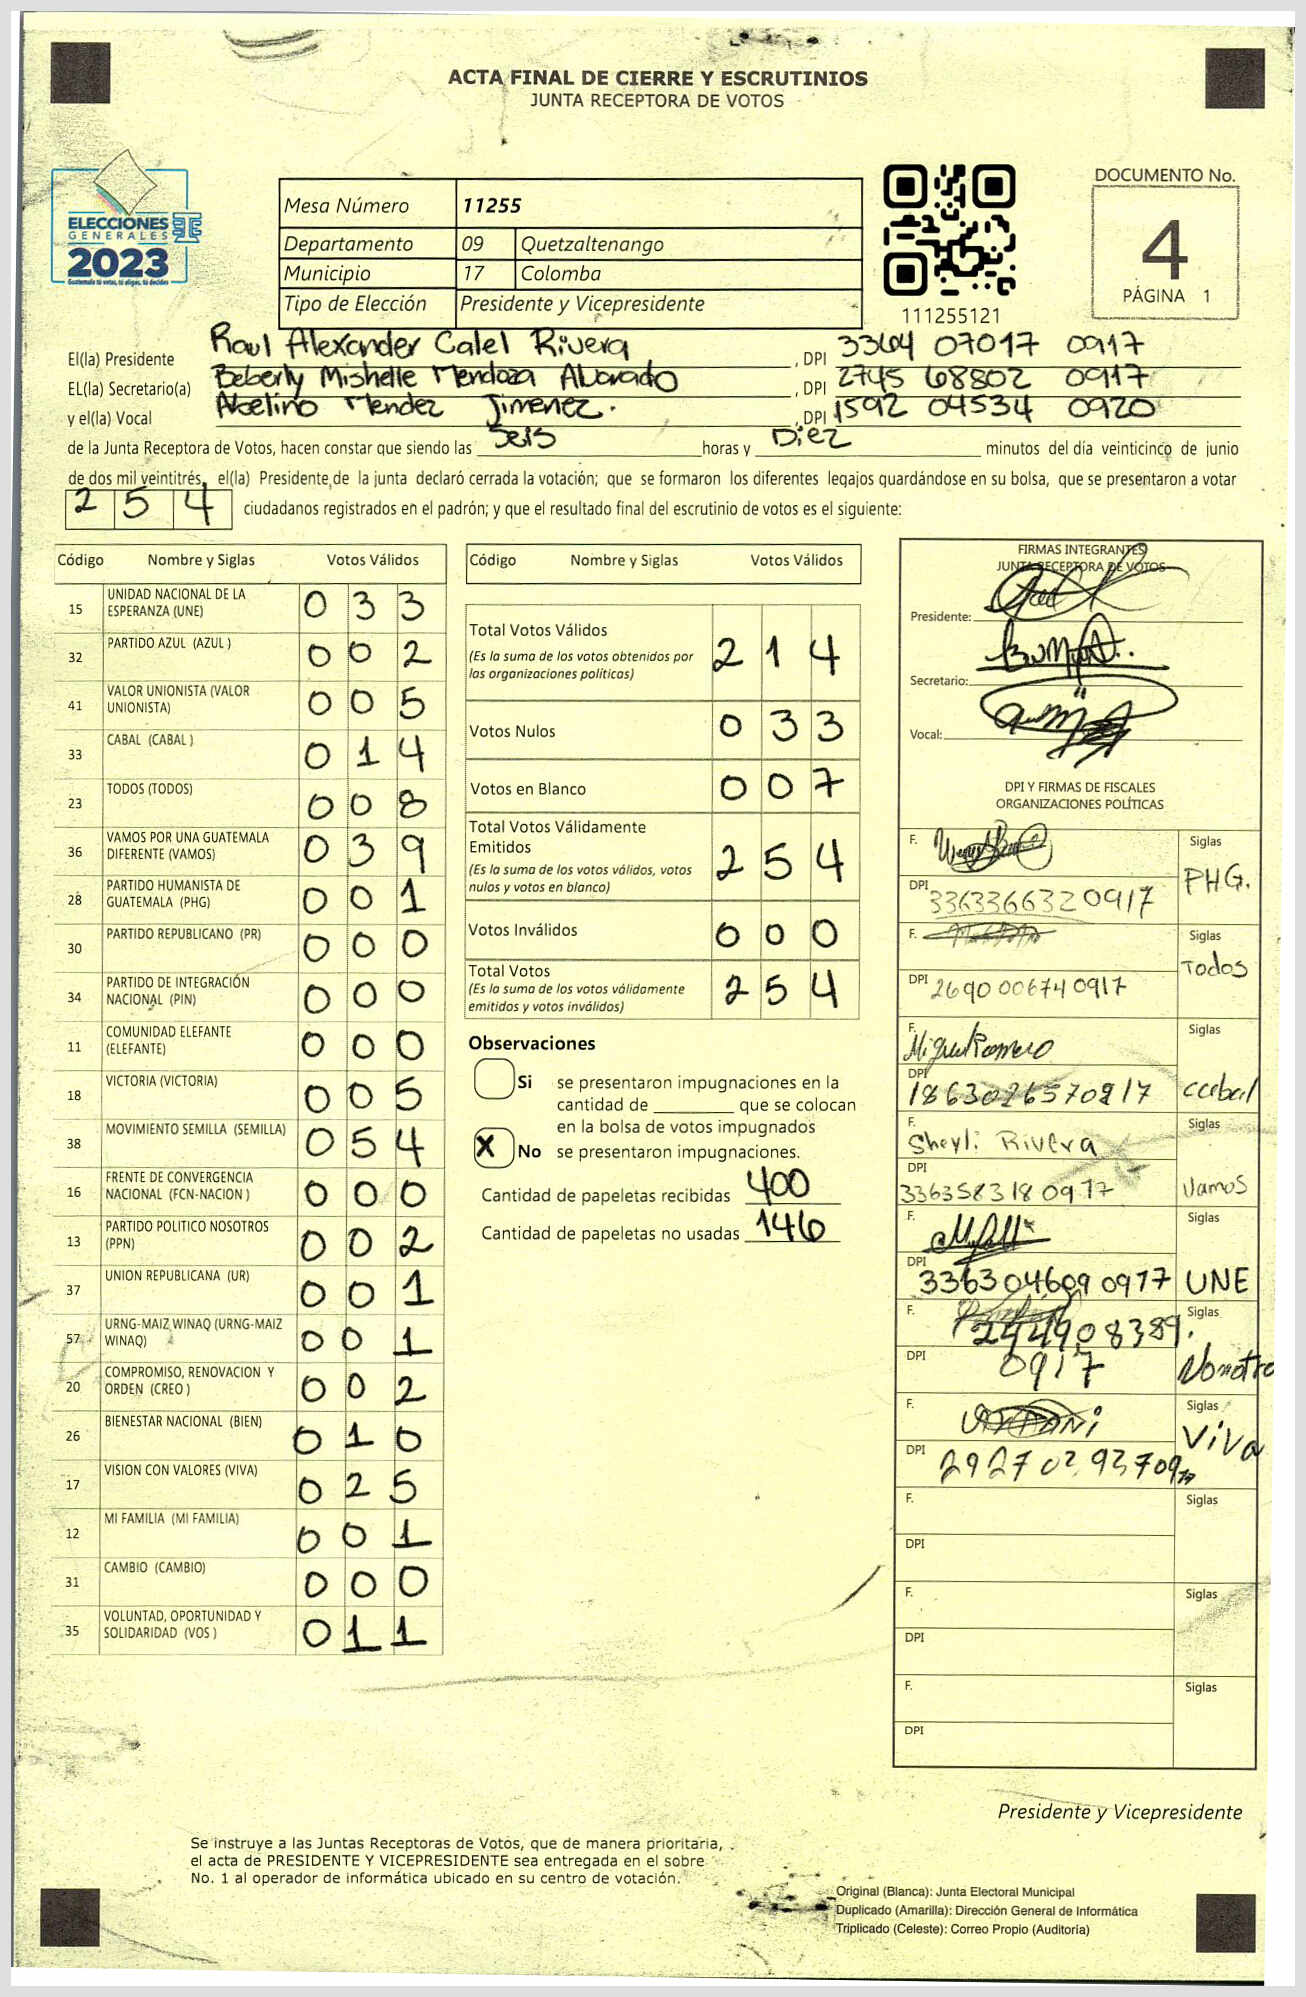 ACTA FINAL DE CIERRE Y ESCRUTINIOS
JUNTA RECEPTORA DE VOTOS
ELECCIONES
GENERALES
2023
Guatemala tú votas, tú eliges, tú decides
Mesa Número 11255
Departamento 09 Quetzaltenango
Municipio 17 Colomba
Tipo de Elección Presidente y Vicepresidente
111255121
DOCUMENTO No.
4
PÁGINA 1
El(la) Presidente Raul Alexander Calel Rivera , DPI 33604 07017 0917
EL(la) Secretario(a) Beberly Mishelle Mendoza Alvarado , DPI 2745 68802 0917
y el(la) Vocal Abelino Mendez Jimenez. , DPI 1592 04534 0920
de la Junta Receptora de Votos, hacen constar que siendo las Seis horas y Diez minutos del día veinticinco de junio
de dos mil veintitrés, el(la) Presidente de la junta declaró cerrada la votación; que se formaron los diferentes legajos guardándose en su bolsa, que se presentaron a votar
254 ciudadanos registrados en el padrón; y que el resultado final del escrutinio de votos es el siguiente:
Código Nombre y Siglas Votos Válidos
15 UNIDAD NACIONAL DE LA
ESPERANZA (UNE) 033
32 PARTIDO AZUL (AZUL ) 002
41 VALOR UNIONISTA (VALOR
UNIONISTA) 005
33 CABAL (CABAL ) 014
23 TODOS (TODOS) 008
36 VAMOS POR UNA GUATEMALA
DIFERENTE (VAMOS) 039
28 PARTIDO HUMANISTA DE
GUATEMALA (PHG) 001
30 PARTIDO REPUBLICANO (PR) 000
34 PARTIDO DE INTEGRACIÓN
NACIONAL (PIN) 000
11 COMUNIDAD ELEFANTE
(ELEFANTE) 000
18 VICTORIA (VICTORIA) 005
38 MOVIMIENTO SEMILLA (SEMILLA) 054
16 FRENTE DE CONVERGENCIA
NACIONAL (FCN-NACION ) 000
13 PARTIDO POLITICO NOSOTROS
(PPN) 002
37 UNION REPUBLICANA (UR) 001
57 URNG-MAIZ WINAQ (URNG-MAIZ
WINAQ) 001
20 COMPROMISO, RENOVACION Y
ORDEN (CREO ) 002
26 BIENESTAR NACIONAL (BIEN) 010
17 VISION CON VALORES (VIVA) 025
12 MI FAMILIA (MI FAMILIA) 001
31 CAMBIO (CAMBIO) 000
35 VOLUNTAD, OPORTUNIDAD Y
SOLIDARIDAD (VOS ) 011
Código Nombre y Siglas Votos Válidos
Total Votos Válidos 214
(Es la suma de los votos obtenidos por
las organizaciones políticas)
Votos Nulos 033
Votos en Blanco 007
Total Votos Válidamente
Emitidos 254
(Es la suma de los votos válidos, votos
nulos y votos en blanco)
Votos Inválidos 000
Total Votos 254
(Es la suma de los votos válidamente
emitidos y votos inválidos)
Observaciones
Si se presentaron impugnaciones en la
cantidad de ________ que se colocan
en la bolsa de votos impugnados
X No se presentaron impugnaciones.
Cantidad de papeletas recibidas 400
Cantidad de papeletas no usadas 146
FIRMAS INTEGRANTES
JUNTA RECEPTORA DE VOTOS
Presidente:
Secretario:
Vocal:
DPI Y FIRMAS DE FISCALES
ORGANIZACIONES POLÍTICAS
F. Siglas
DPI 3363366320917 PHG.
F. Siglas
DPI 2690006740917 Todos
F. Miguel Romero Siglas
DPI cabal
F. Sheyli Rivera Siglas
DPI 3363583180917 Vamos
F. Siglas
DPI 3363046090917 UNE
F. Siglas
DPI 0917
F. Siglas
DPI Viva
F. Siglas
DPI
F. Siglas
DPI
F. Siglas
DPI
Presidente y Vicepresidente
Se instruye a las Juntas Receptoras de Votos, que de manera prioritaria,
el acta de PRESIDENTE Y VICEPRESIDENTE sea entregada en el sobre
No. 1 al operador de informática ubicado en su centro de votación.
Original (Blanca): Junta Electoral Municipal
Duplicado (Amarilla): Dirección General de Informática
Triplicado (Celeste): Correo Propio (Auditoría)